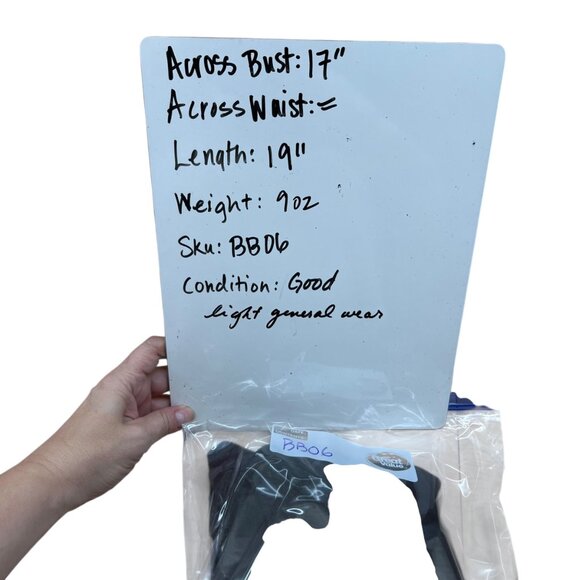 Across Bust: 17"
Across Waist: =
Length: 19"
Weight: 9oz
Sku: BB06
Condition: Good
light general wear
BB06
Great
Value